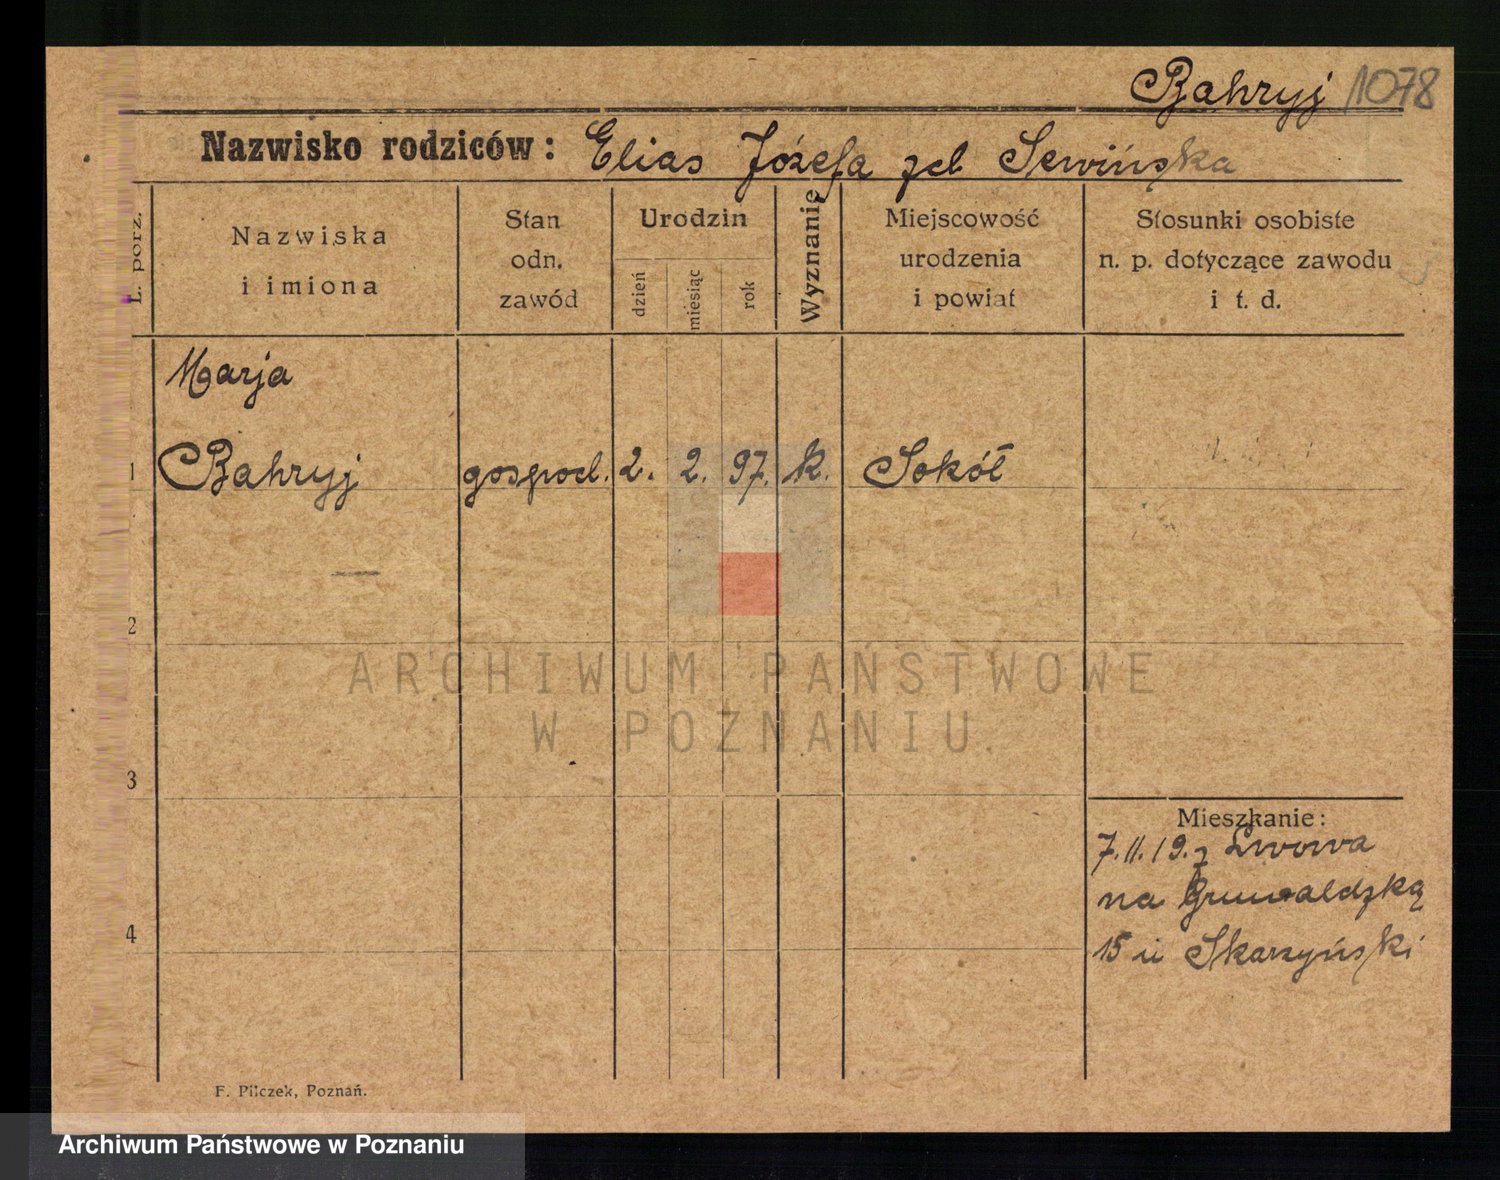 Bahryj 1078
Nazwisko rodziców: Elias Józefa zd Sewińska
L. porz.
Nazwiska
i imiona
Stan
odn.
zawód
Urodzin
dzień
miesiąc
rok
Wyznanie
Miejscowość
urodzenia
i powiat
Stosunki osobiste
n. p. dotyczące zawodu
i t. d.
Marja
1 Bahryj gospod. 2. 2. 97. k. Sokół
2
3
4
Mieszkanie:
7.11.19. z Lwowa
na Grunwaldzką
15 u Skarzyński
ARCHIWUM PAŃSTWOWE
W POZNANIU
F. Pilczek, Poznań.
Archiwum Państwowe w Poznaniu